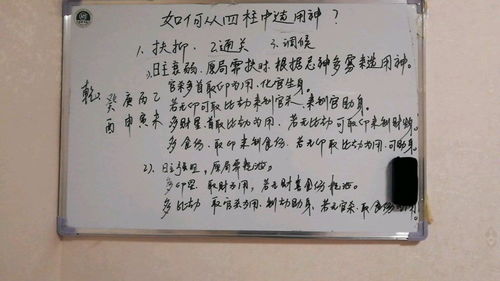 如何从四柱中选用神？
1、扶抑. 2.通关 3.调候
1)、日主衰弱，原局需扶时.根据忌神多寡来选用神。
官杀多首取印为用、化官生身。
若无印可取比劫来制官杀、来制官助身。
多财星.首取比劫为用、若无比劫可取印来制财
多食伤、取印来制食伤、若无印取比劫为用.可助身。
乾： 癸 庚 丙 乙
酉 申 寅 未
2)、日主强旺，原局需克泄。
多印星 取财为用，若无财喜食伤
多比劫 取官杀为用、制劫助身、若无官杀、取食伤